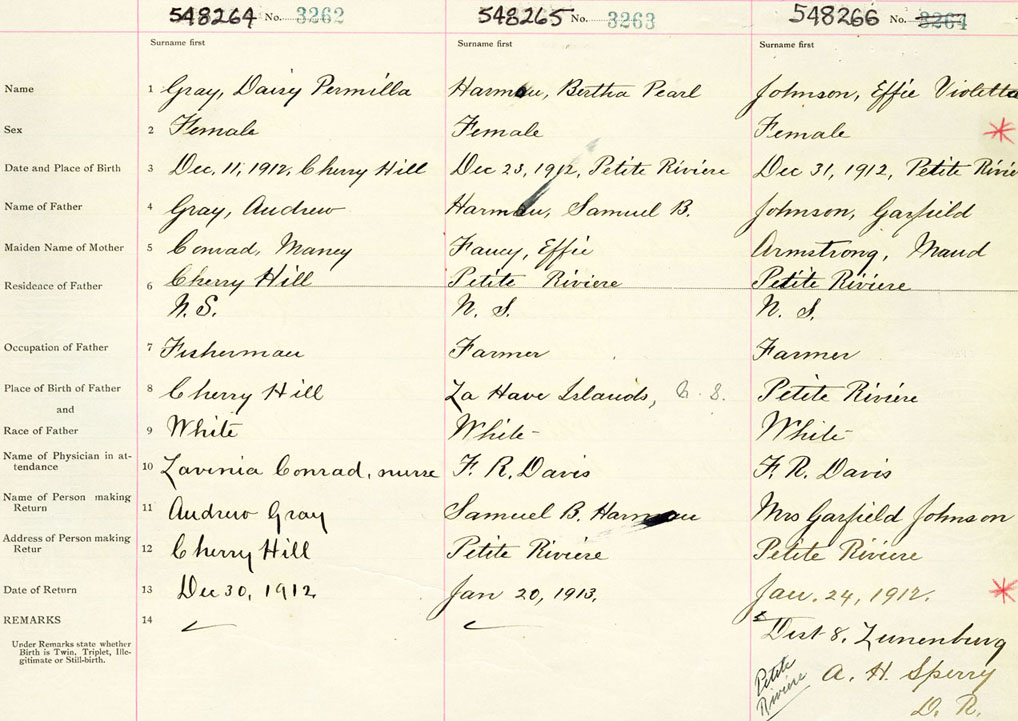 548264 No. 3262 548265 No. 3263 548266 No. 3264
Surname first Surname first Surname first
Name 1 Gray, Daisy Permilla Harman, Bertha Pearl Johnson, Effie Violetta
Sex 2 Female Female Female
Date and Place of Birth 3 Dec. 11, 1912, Cherry Hill Dec 23, 1912, Petite Riviere Dec 31, 1912, Petite Rivie
Name of Father 4 Gray, Andrew Harman, Samuel B. Johnson, Garfield
Maiden Name of Mother 5 Conrad, Maney Faucy, Effie Armstrong, Maud
Residence of Father 6 Cherry Hill Petite Riviere Petite Riviere
N. S. N. S. N. S.
Occupation of Father 7 Fisherman Farmer Farmer
Place of Birth of Father 8 Cherry Hill La Have Islands, N. S. Petite Riviere
and
Race of Father 9 White White White
Name of Physician in at-
tendance 10 Lavinia Conrad, nurse F. R. Davis F. R. Davis
Name of Person making
Return 11 Andrew Gray Samuel B. Harman Mrs Garfield Johnson
Address of Person making
Retur 12 Cherry Hill Petite Riviere Petite Riviere
Date of Return 13 Dec 30, 1912 Jan 20, 1913. Jan. 24, 1912.
REMARKS 14
Under Remarks state whether
Birth is Twin, Triplet, Ille-
gitimate or Still-birth.
Dist 8. Lunenburg
Petite
Riviere
A. H. Sperry
D. R.